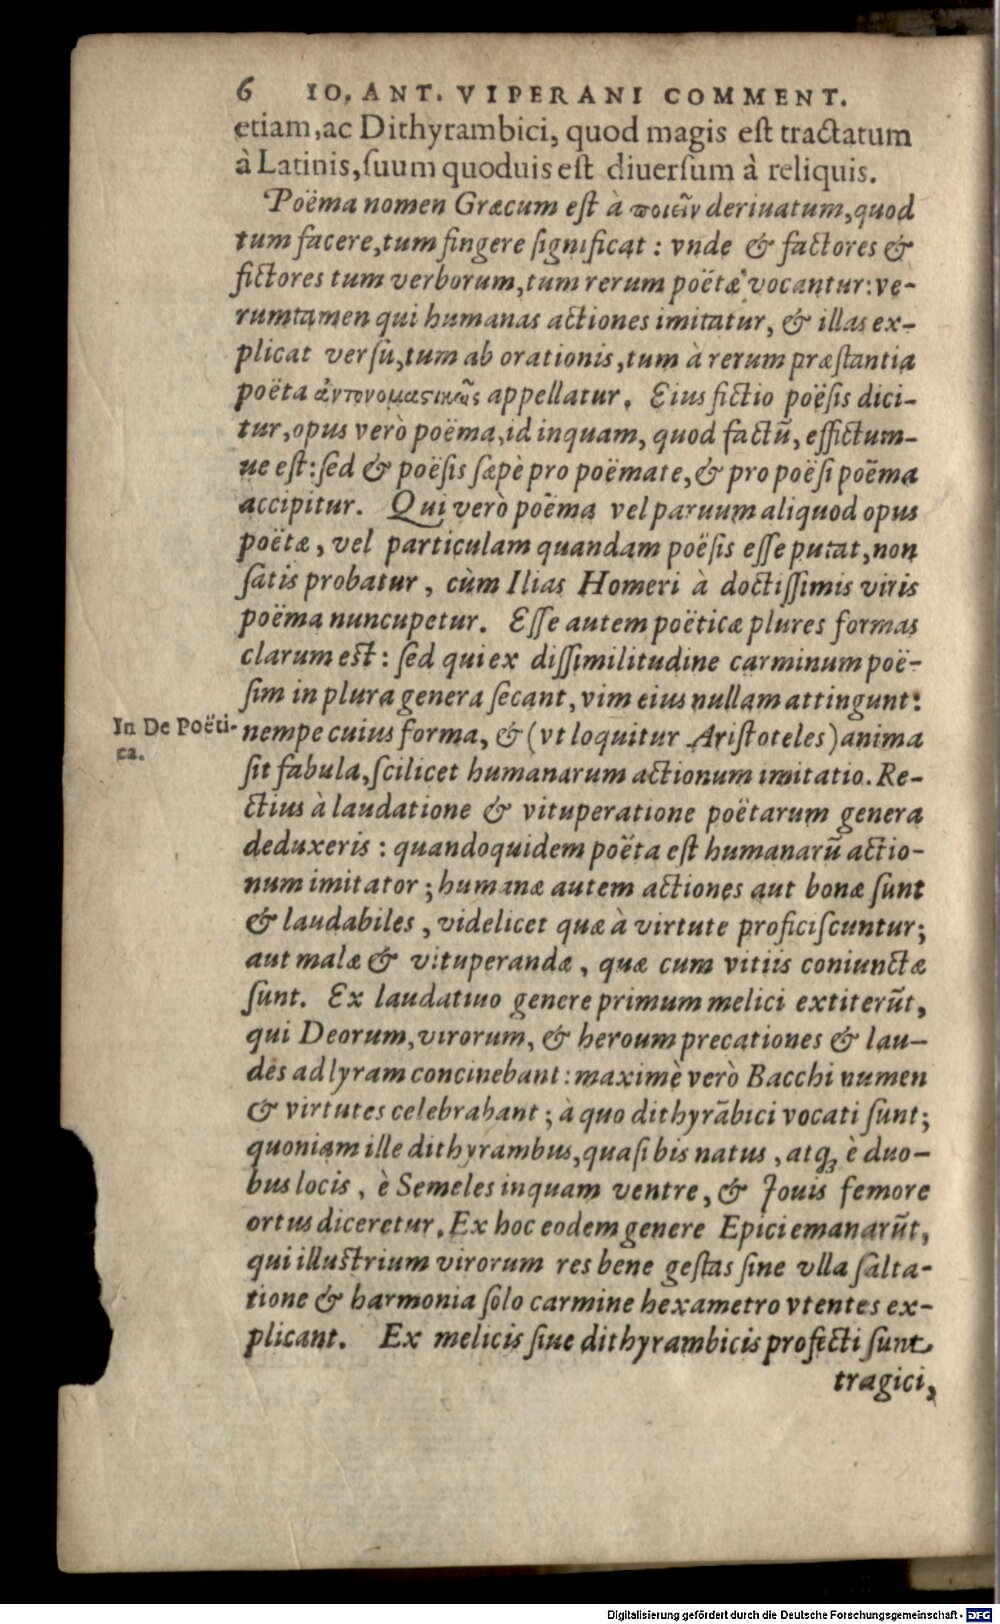 6 IO. ANT. VIPERANI COMMENT.
etiam, ac Dithyrambici, quod magis est tractatum
à Latinis, ſuum quoduis est diuerſum à reliquis.
Poëma nomen Græcum eſt à ποιεῖν deriuatum, quod
tum facere, tum fingere ſignificat : vnde & factores &
fictores tum verborum, tum rerum poëtæ vocantur: ve-
rumtamen qui humanas actiones imitatur, & illas ex-
plicat verſu, tum ab orationis, tum à rerum præſtantia
poëta ἀντονομαστικῶς appellatur. Eius fictio poëſis dici-
tur, opus verò poëma, id inquam, quod factū, effictum-
ue eſt: ſed & poëſis ſæpè pro poëmate, & pro poëſi poëma
accipitur. Qui verò poëma vel paruum aliquod opus
poëtæ, vel particulam quandam poëſis eſſe putat, non
ſatis probatur, cùm Ilias Homeri à doctiſſimis viris
poëma nuncupetur. Eſſe autem poëticæ plures formas
clarum est: ſed qui ex diſſimilitudine carminum poë-
ſim in plura genera ſecant, vim eius nullam attingunt:
In De Poëti-
ca.
nempe cuius forma, & (vt loquitur Ariſtoteles) anima
ſit fabula, ſcilicet humanarum actionum imitatio. Re-
ctius à laudatione & vituperatione poëtarum genera
deduxeris : quandoquidem poëta eſt humanarū actio-
num imitator; humanæ autem actiones aut bonæ ſunt
& laudabiles, videlicet quæ à virtute proficiſcuntur;
aut malæ & vituperandæ, quæ cum vitiis coniunctæ
ſunt. Ex laudatiuo genere primum melici extiterūt,
qui Deorum, virorum, & heroum precationes & lau-
des ad lyram concinebant: maximè verò Bacchi numen
& virtutes celebrabant; à quo dithyrābici vocati ſunt;
quoniam ille dithyrambus, quaſi bis natus, atq; è duo-
bus locis, è Semeles inquam ventre, & Jouis femore
ortus diceretur. Ex hoc eodem genere Epici emanarūt,
qui illustrium virorum res bene geſtas ſine vlla ſalta-
tione & harmonia ſolo carmine hexametro vtentes ex-
plicant. Ex melicis ſiue dithyrambicis profecti ſunt
tragici,
Digitalisierung gefördert durch die Deutsche Forschungsgemeinschaft - DFG